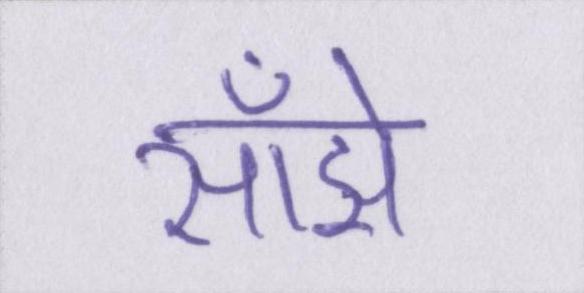 साँझे